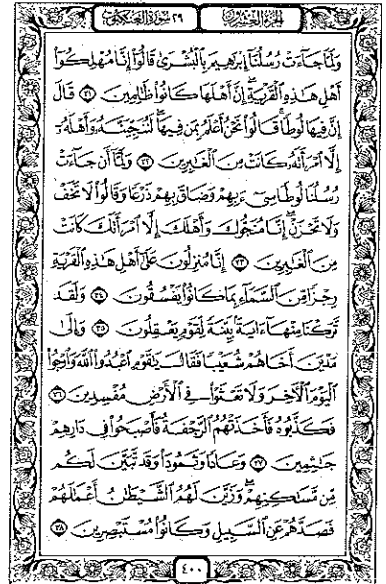 الجزء العشرون ٢٩ سورة العنكبوت
وَلَمَّا جَاءَتْ رُسُلُنَا إِبْرَاهِيمَ بِالْبُشْرَىٰ قَالُوا إِنَّا مُهْلِكُوا
أَهْلِ هَٰذِهِ الْقَرْيَةِ ۖ إِنَّ أَهْلَهَا كَانُوا ظَالِمِينَ ٣١ قَالَ
إِنَّ فِيهَا لُوطًا ۚ قَالُوا نَحْنُ أَعْلَمُ بِمَن فِيهَا ۖ لَنُنَجِّيَنَّهُ وَأَهْلَهُ
إِلَّا امْرَأَتَهُ كَانَتْ مِنَ الْغَابِرِينَ ٣٢ وَلَمَّا أَن جَاءَتْ
رُسُلُنَا لُوطًا سِيءَ بِهِمْ وَضَاقَ بِهِمْ ذَرْعًا وَقَالُوا لَا تَخَفْ
وَلَا تَحْزَنْ ۖ إِنَّا مُنَجُّوكَ وَأَهْلَكَ إِلَّا امْرَأَتَكَ كَانَتْ
مِنَ الْغَابِرِينَ ٣٣ إِنَّا مُنزِلُونَ عَلَىٰ أَهْلِ هَٰذِهِ الْقَرْيَةِ
رِجْزًا مِّنَ السَّمَاءِ بِمَا كَانُوا يَفْسُقُونَ ٣٤ وَلَقَد
تَّرَكْنَا مِنْهَا آيَةً بَيِّنَةً لِّقَوْمٍ يَعْقِلُونَ ٣٥ وَإِلَىٰ
مَدْيَنَ أَخَاهُمْ شُعَيْبًا فَقَالَ يَا قَوْمِ اعْبُدُوا اللَّهَ وَارْجُوا
الْيَوْمَ الْآخِرَ وَلَا تَعْثَوْا فِي الْأَرْضِ مُفْسِدِينَ ٣٦
فَكَذَّبُوهُ فَأَخَذَتْهُمُ الرَّجْفَةُ فَأَصْبَحُوا فِي دَارِهِمْ
جَاثِمِينَ ٣٧ وَعَادًا وَثَمُودَا وَقَد تَّبَيَّنَ لَكُم
مِّن مَّسَاكِنِهِمْ ۖ وَزَيَّنَ لَهُمُ الشَّيْطَانُ أَعْمَالَهُمْ
فَصَدَّهُمْ عَنِ السَّبِيلِ وَكَانُوا مُسْتَبْصِرِينَ ٣٨
٤٠٠